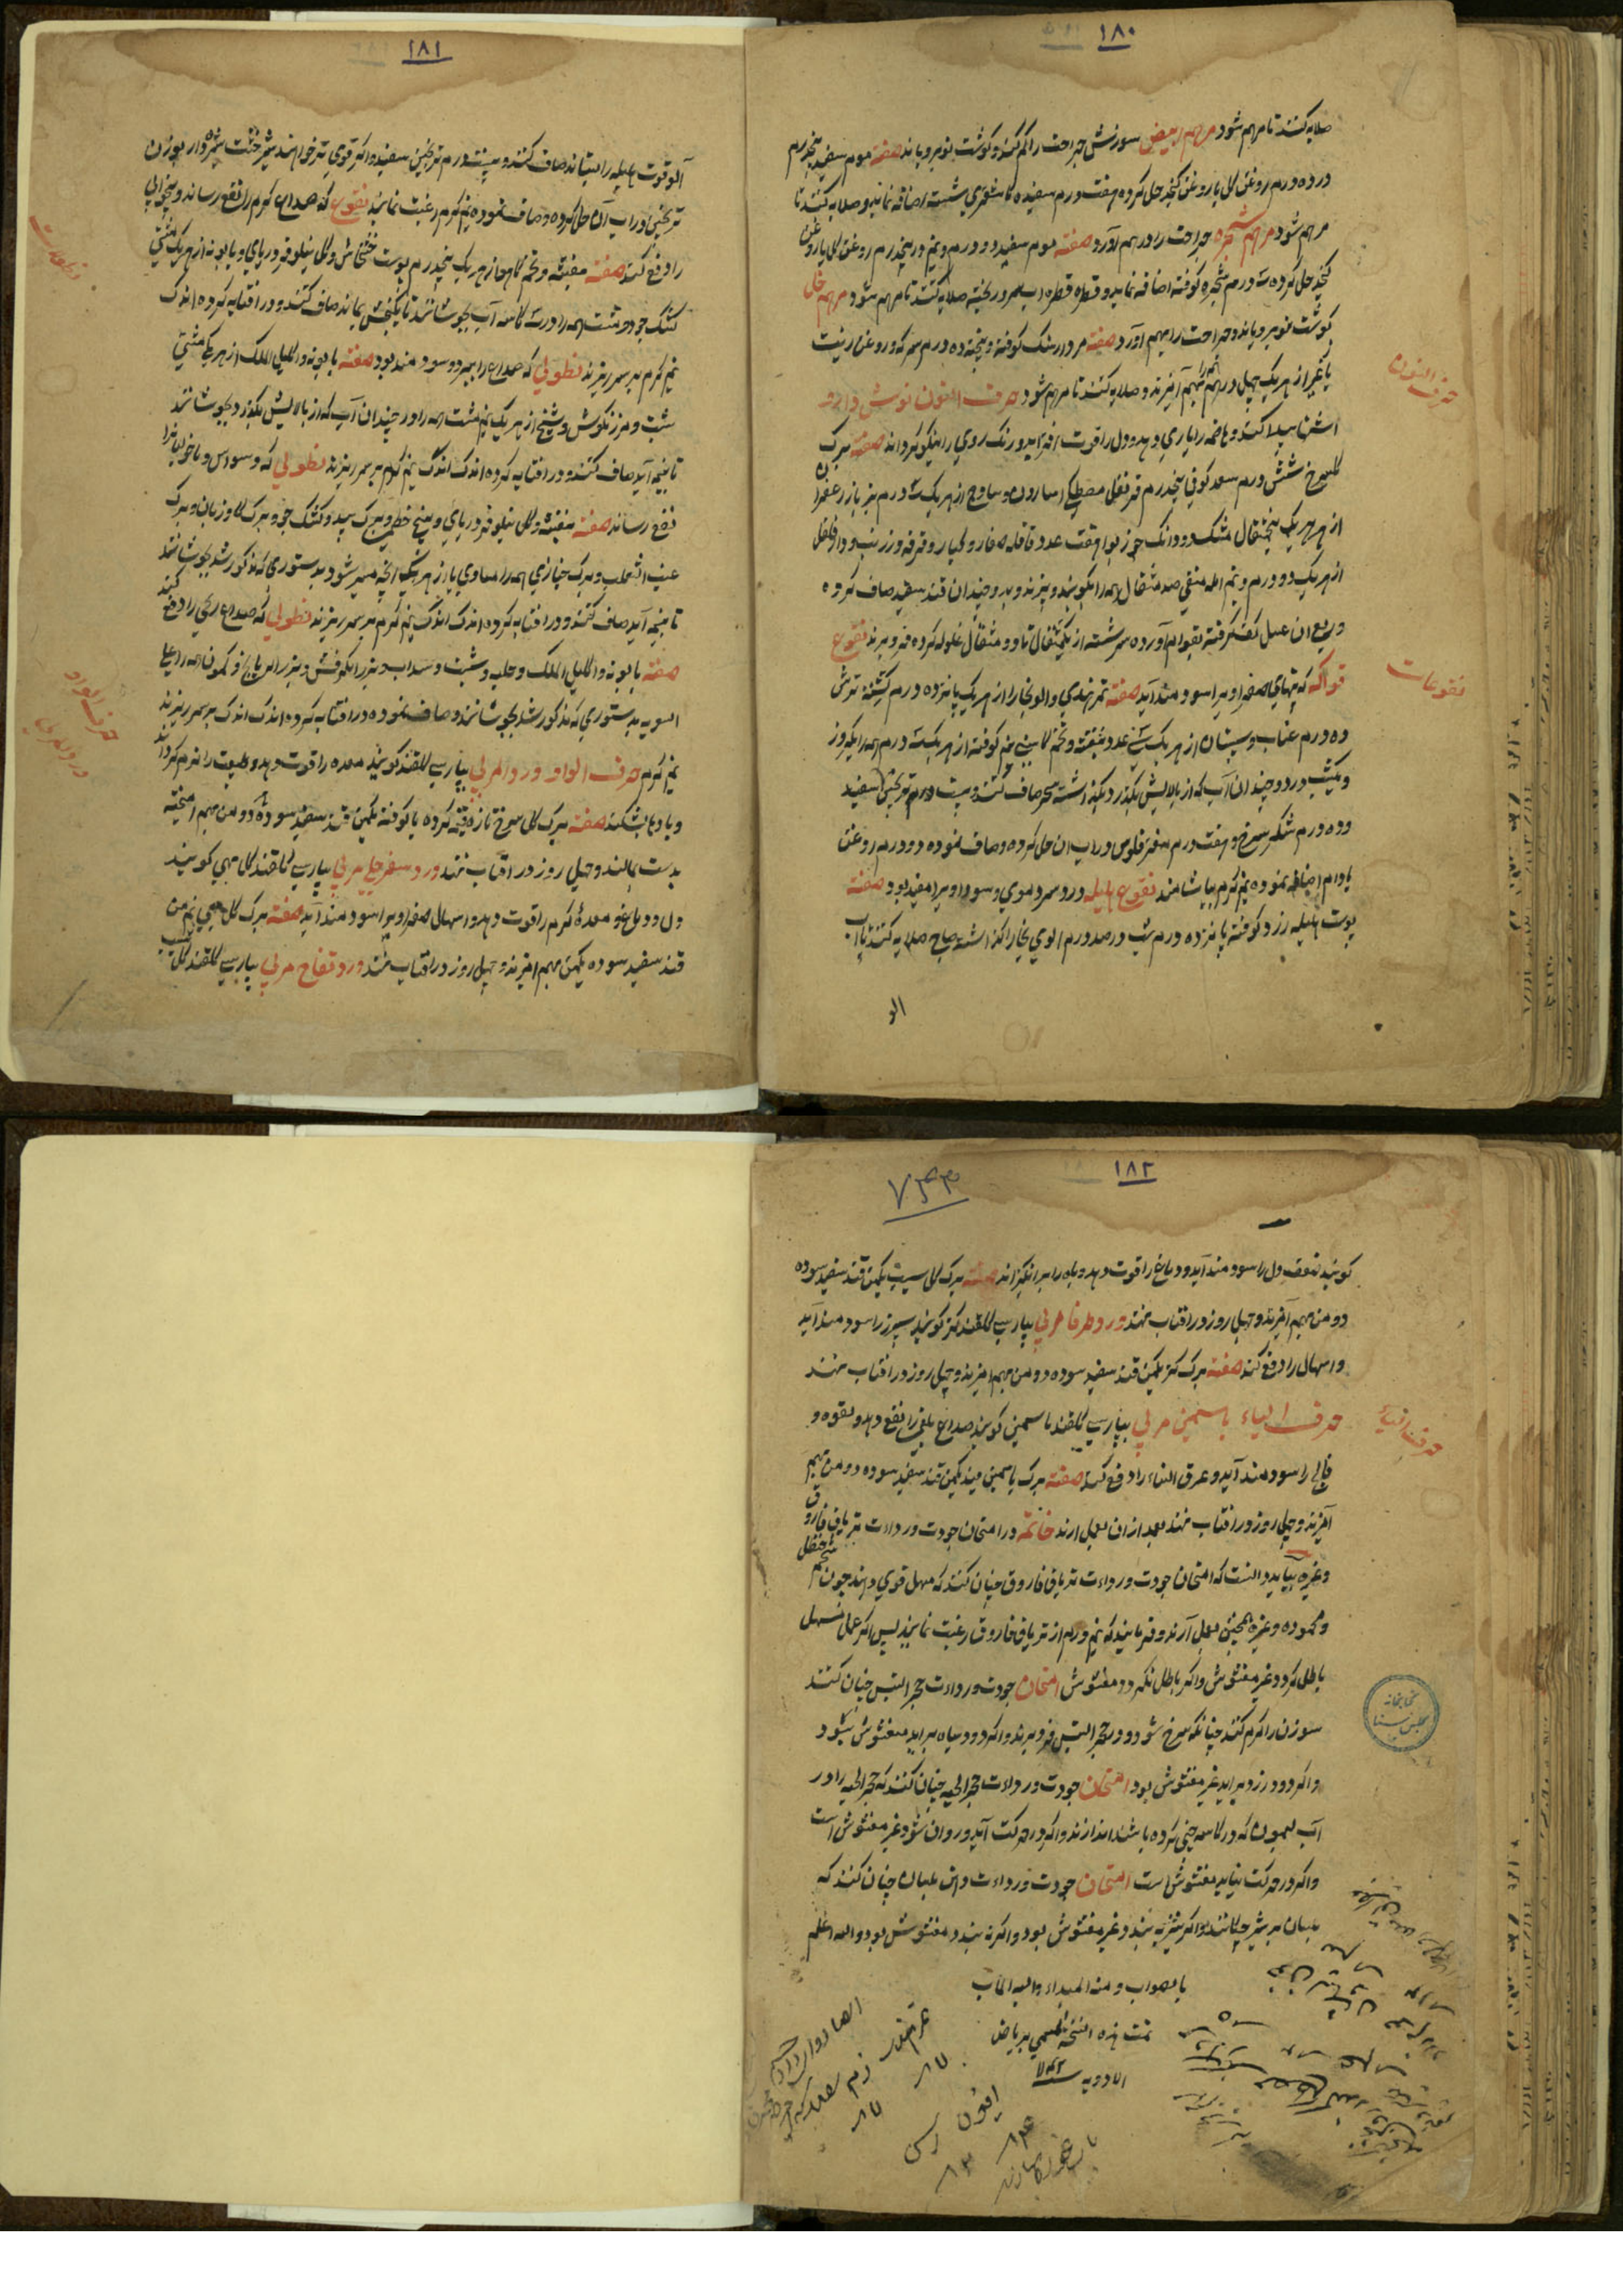 ۱۸۰
صلایه کنند تا مرهم شود مرهم ابیض سوزش جراحت را کم کند و گوشت نو برویاند صفته موم سفید پنجدرم
در ده درم روغن گل یا روغن کنجد حل کرده هفت درم سفیده کاشغری شسته اضافه نمایند و صلایه کنند تا
مرهم شود مرهم شنجره جراحت را درهم آورد صفته موم سفید دو درم و نیم در پنجدرم روغن گل یا روغن
کنجد حل کرده سه درم شنجره کوفته اضافه نمایند و قطره قطره آب سرد ریخته صلایه کنند تا مرهم شود مرهم خل
گوشت نو برویاند و جراحت را بهم آورد صفته مردارسنگ کوفته و بیخته ده درم سرکه و روغن زیت
یا غیر از هر یک چهل درهم بهم آمیزند و صلایه کنند تا مرهم شود حرف النون نوش دارو
اشتها پیدا کند و هاضمه را یاری دهد و دل را قوت افزاید و رنگ روی را نیکو گرداند صفته برگ
گل سرخ شش درم سعد کوفی پنجدرم قرنفل مصطکی اسارون و ساذج از هر یک سه درم
از هر یک پنج مثقال مشک دو دانگ جوز بوا هفت عدد قاقله صغار و کبار و قرفه و زرنب و دارفلفل
از هر یک دو درم و نیم آمله منقی صد مثقال همه را بکوبند و بپزند و دو چندان قند سفید صاف کرده
و ربع آن عسل کف گرفته بقوام آورده سرشته از یک مثقال تا دو مثقال غلوله کرده فرو برند نقوع
فواکه که تبهای صفراوی را سودمند آید صفته تمر هندی و آلو بخارا از هر یک پانزده درم کشنه ترش
ده درم عناب و سپستان از هر یک سی عدد بنفشه و تخم کاسنی نیم کوفته از هر یک سه درم همه را یک روز
و یک شب در دو چندان آب که از بالایش بگذرد بگذاشته سحر صاف کنند و بیست درم ترنجبین سفید
و ده درم شکر سرخ و هفت درم مغز فلوس در آب آن حل کرده و صاف نموده دو درم روغن
بادام اضافه نموده نیم گرم بیاشامند نقوع هلیله درد سر دموی و سوداوی را مفید بود صفته
پوست هلیله زرد کوفته پانزده درم شب در صد درم آلوی بخارا گذاشته صباح صلایه کنند تا آب
الو
حرف النون
نقوعات
۱۸۱
آلو قوت هلیله را بستاند صاف کنند و بیست درم ترنجبین سفید و اگر قوی تر خواهند شیرخشت شیره وار بوزن
ترنجبین در آب آن حل کرده و صاف نموده نیم گرم رغبت نمایند نقوع که صداع گرم را نفع رساند و بیخوابی
را دفع کند صفته بنفشه و تخم کاهو از هر یک پنجدرم پوست خشخاش و گل نیلوفر دریای و بابونه از هر یک مشتی
کشک جو دو مشت همه را در سه کاسه آب بجوشانند تا یک بخش بماند صاف کنند و در آفتابه کرده اندک
نیم گرم بر سر ریزند نطولی که صداع را ببرد و سودمند بود صفته بابونه و اکلیل الملک از هر یک مشتی
شبت و مرزنگوش و شیح از هر یک نیم مشت همه را در چندان آب که از بالایش بگذرد بجوشانند
تا نیمه آید صاف کنند و در آفتابه کرده اندک اندک نیم گرم بر سر ریزند نطولی که وسواس و ماخولیا را
نفع رساند صفته بنفشه و گل نیلوفر دریای و بیخ خطمی و برگ بید و کشک جو و برگ گاوزبان و برگ
عنب الثعلب و برگ خبازی همه را مساوی یا از هر یک آنچه میسر شود بدستوری که مذکور شد بجوشانند
تا نیمه آید صاف کنند و در آفتابه کرده اندک اندک نیم گرم بر سر ریزند نطولی که صداع ریحی را دفع کند
صفته بابونه و اکلیل الملک و حلبه و شبت و سداب و بزر الکرفس و بزر الرازیانج و کمون همه را علی
السویه بدستوری که مذکور شد بجوشانند و صاف نموده در آفتابه کرده اندک اندک بر سر ریزند
نیم گرم حرف الواو ورد المربی بپارسی گلقند گویند معده را قوت دهد و طبیعت را نرم گرداند
و بادها بشکند صفته برگ گل سرخ تازه کرده یا کوفته یکمن قند سفید سوده دو من بهم آمیخته
بدست بمالند و چهل روز در آفتاب نهند ورد سفرجلی مربی بپارسی گلقند گل بهی گویند
دل و دماغ و معده گرم را قوت دهد و اسهال صفراوی را سودمند آید صفته برگ گل بهی نیم من
قند سفید سوده یکمن بهم آمیزند و چهل روز در آفتاب نهند ورد تفاح مربی بپارسی گلقند گل سیب
نطولات
حرف الواو
ورد المربی
۱۸۲
۷۴۳
گویند ضعف دل را سودمند آید و دماغ را قوت دهد و باه را برانگیزاند صفته برگ گل سیب یکمن قند سفید سوده
دو من بهم آمیزند و چهل روز در آفتاب نهند ورد طرفا مربی بپارسی گلقند گز گویند سپرز را سودمند آید
و اسهال را دفع کند صفته برگ گز یکمن قند سفید سوده دو من بهم آمیزند و چهل روز در آفتاب نهند
حرف الیاء یاسمین مربی بپارسی گلقند یاسمین گویند صداع بلغمی را نفع دهد و لقوه و
فالج را سودمند آید و عرق النساء را دفع کند صفته برگ یاسمین سفید یکمن قند سفید سوده دو من بهم
آمیزند و چهل روز در آفتاب نهند بعد از آن بعمل آرند خاتمه در امتحان جودت و رداءت تریاق فاروق
و غیره بباید دانست که امتحان جودت و رداءت تریاق فاروق چنان کنند که مسهل قوی دهند چون شحم حنظل
و محموده و غیره همچنین بعمل آرند و فرمایند که نیم درم از تریاق فاروق رغبت نمایند پس اگر عمل مسهل
باطل گردد غیر مغشوش و اگر باطل نگردد مغشوش امتحان جودت و رداءت حجر التیس چنان کنند
سوزن را گرم کنند چنانکه سرخ شود و در حجر التیس فرو برند و اگر دود سیاه برآید مغشوش بود
و اگر دود زرد برآید غیر مغشوش بود امتحان جودت و رداءت حجر الحیه چنان کنند که حجر الحیه را در
آب لیمون که در کاسه چینی کرده باشند اندازند و اگر در حرکت آید و روان شود غیر مغشوش است
و اگر در حرکت نیاید مغشوش است امتحان جودت و رداءت دهن بلسان چنان کنند که
بلسان بر شیر چکانند و اگر شیر به بندد غیر مغشوش بود و اگر نه بندد مغشوش بود والله اعلم
بالصواب و منه المبداء والیه المآب
تمت هذه النسخة المسمی بریاض
الادویه سنه
حرف الیاء
کتابخانه
مجلس سنا
افیون